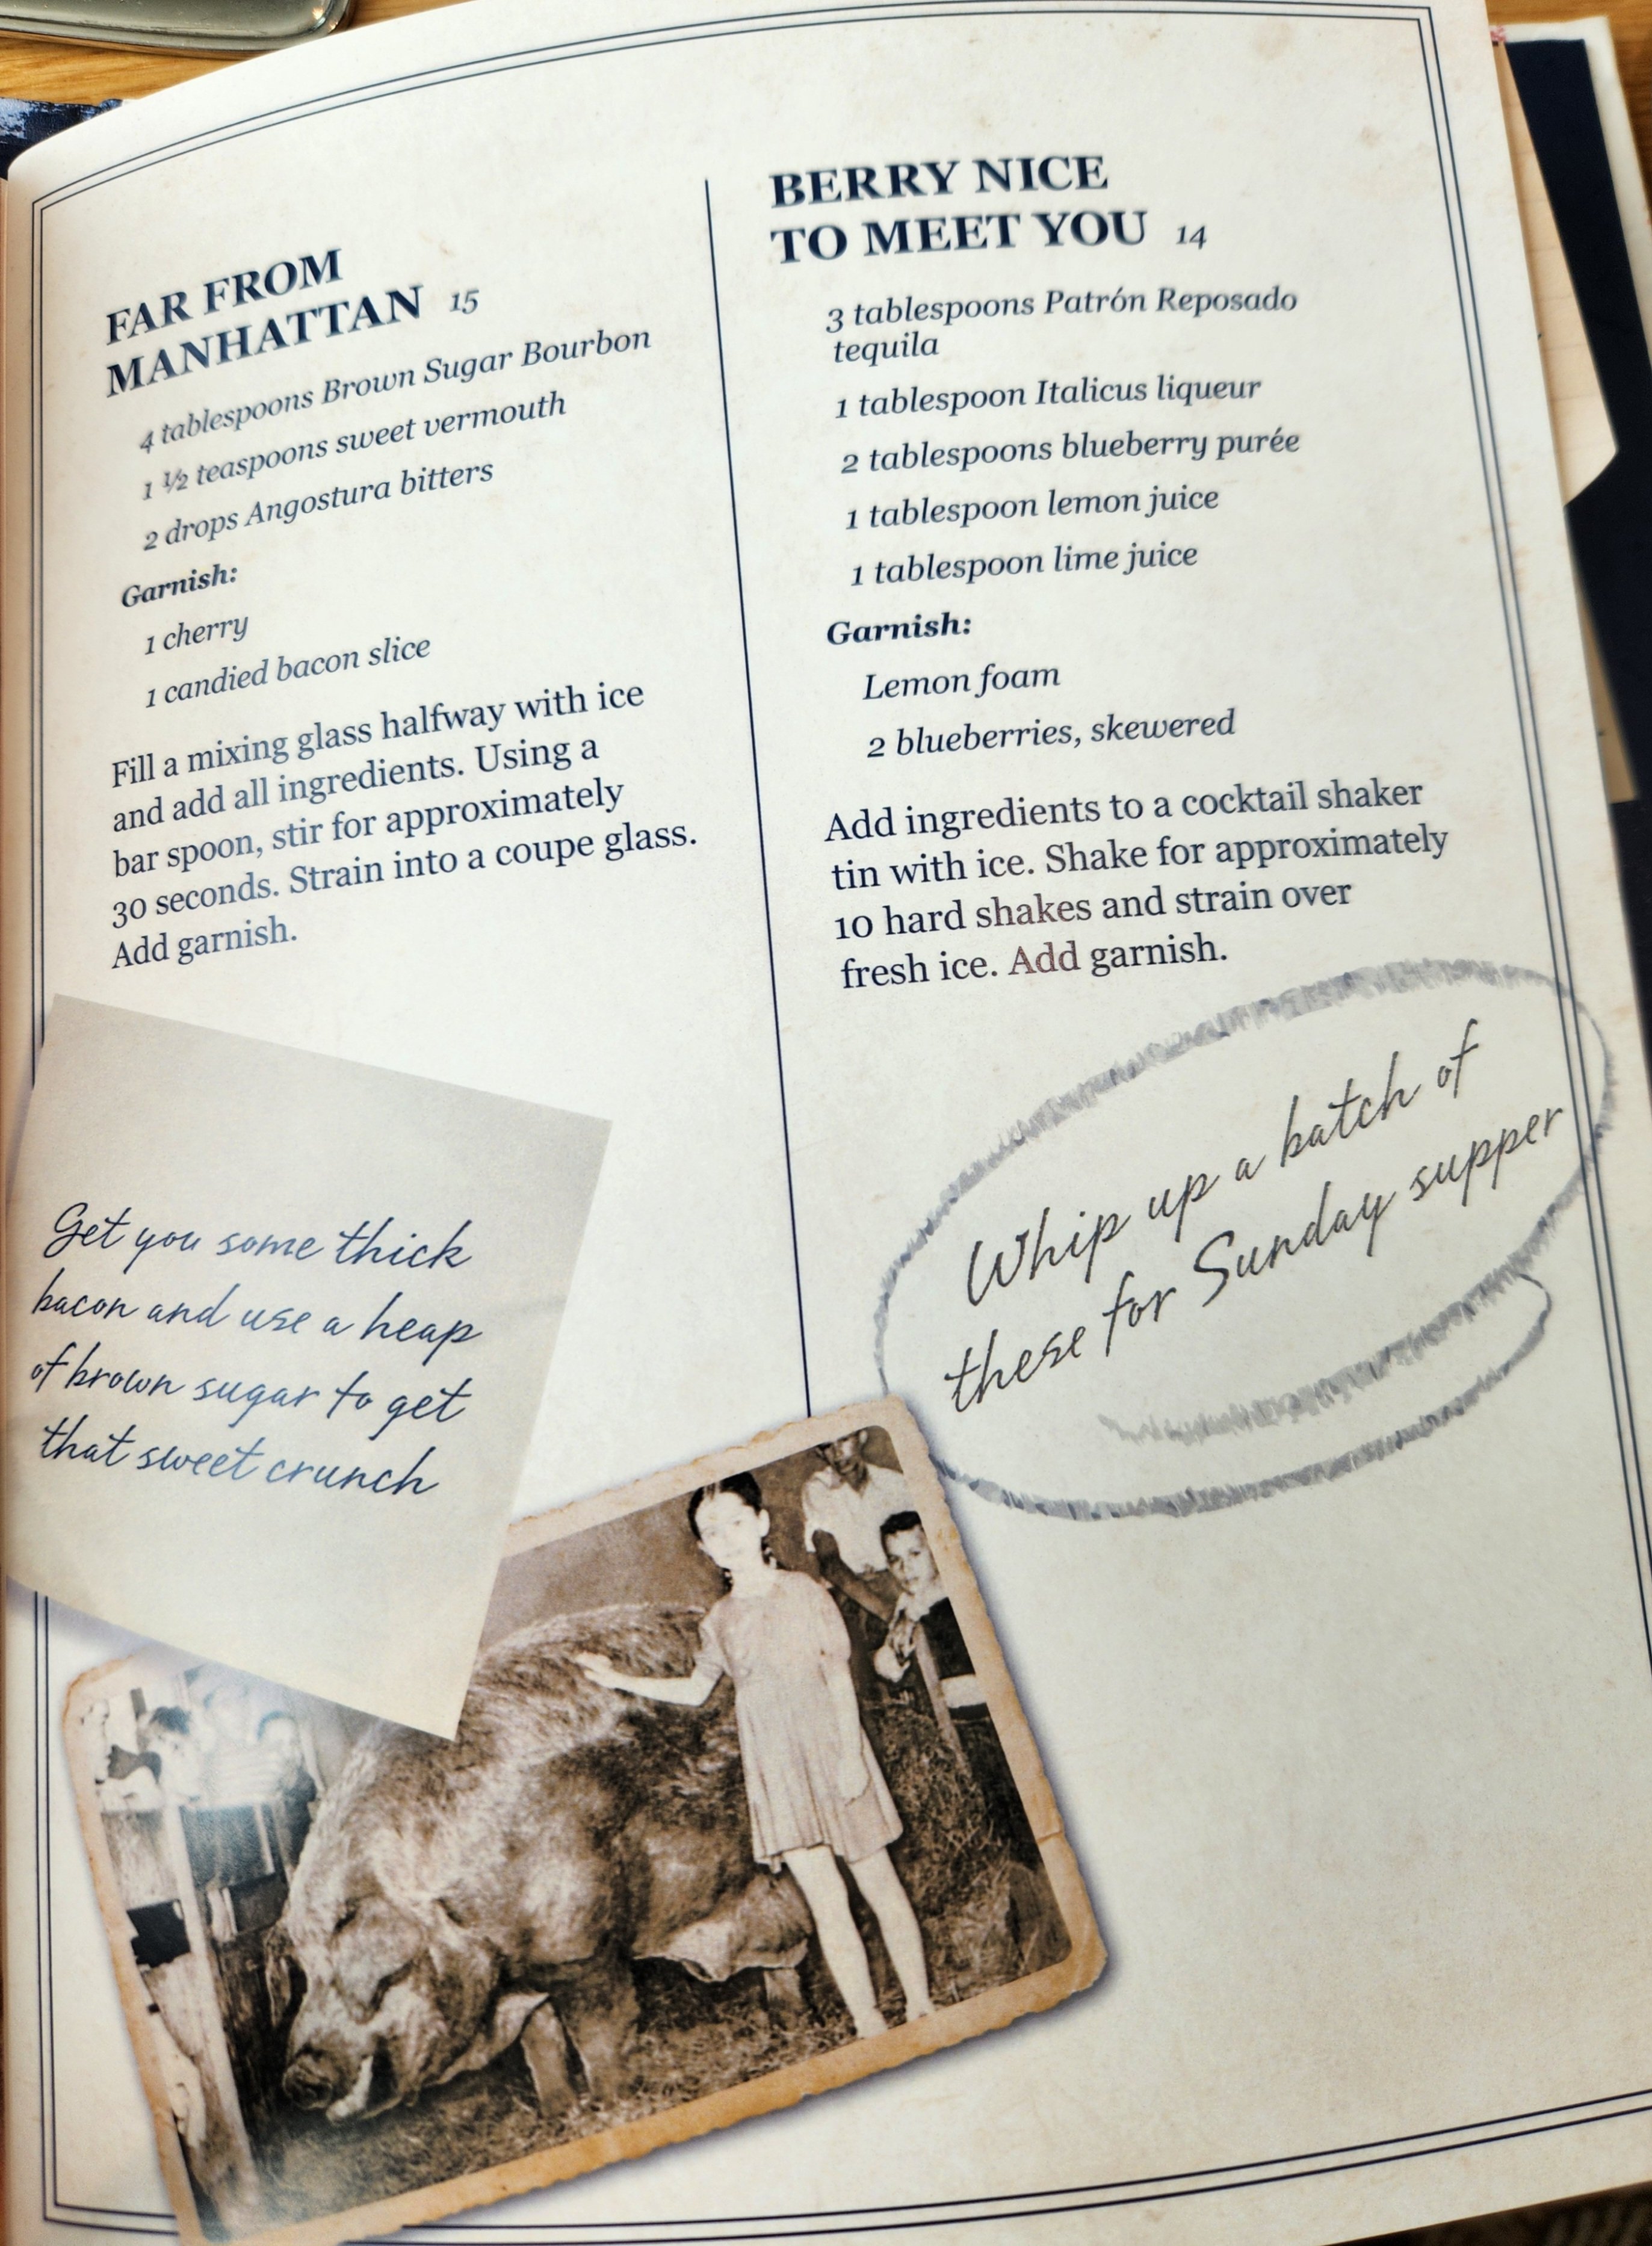 FAR FROM
MANHATTAN 15
4 tablespoons Brown Sugar Bourbon
1 ½ teaspoons sweet vermouth
2 drops Angostura bitters
Garnish:
1 cherry
1 candied bacon slice
Fill a mixing glass halfway with ice
and add all ingredients. Using a
bar spoon, stir for approximately
30 seconds. Strain into a coupe glass.
Add garnish.
Get you some thick
bacon and use a heap
of brown sugar to get
that sweet crunch
BERRY NICE
TO MEET YOU 14
3 tablespoons Patrón Reposado
tequila
1 tablespoon Italicus liqueur
2 tablespoons blueberry purée
1 tablespoon lemon juice
1 tablespoon lime juice
Garnish:
Lemon foam
2 blueberries, skewered
Add ingredients to a cocktail shaker
tin with ice. Shake for approximately
10 hard shakes and strain over
fresh ice. Add garnish.
Whip up a batch of
these for Sunday supper